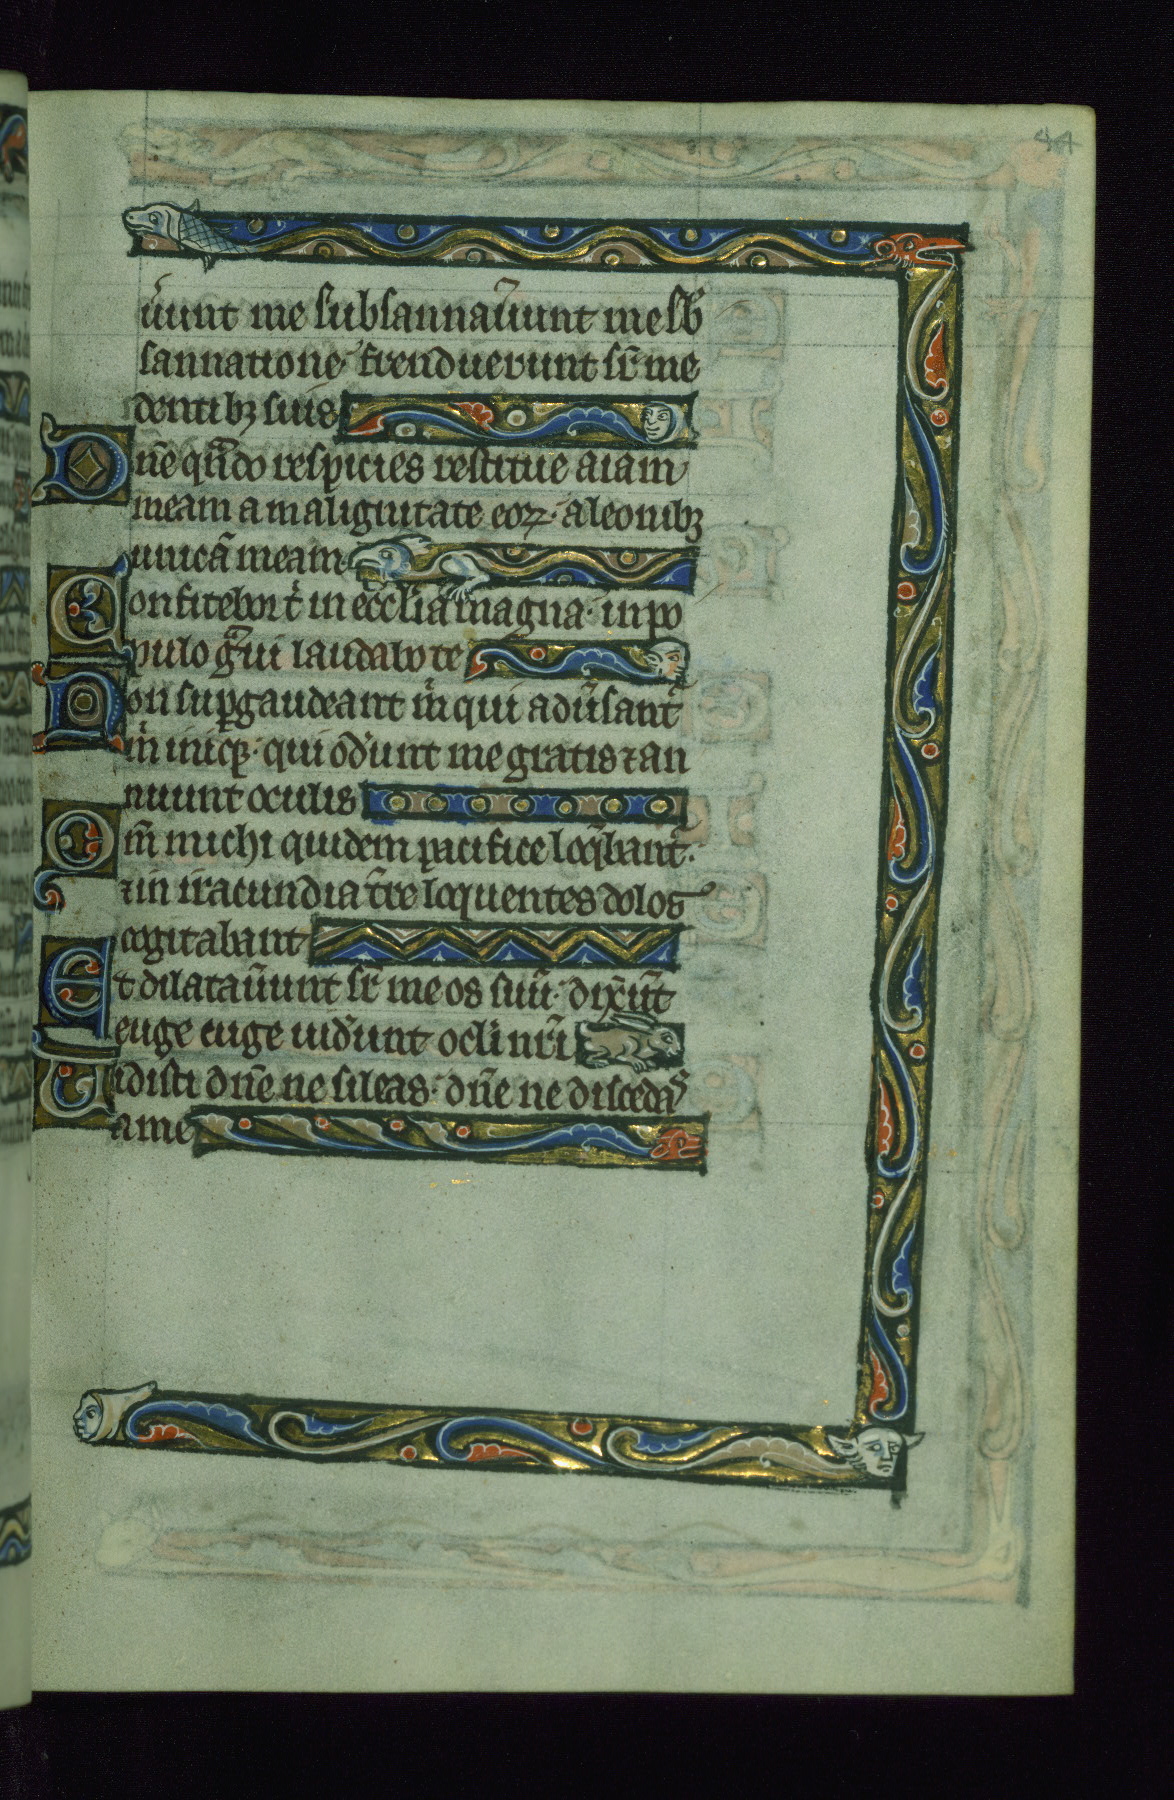 44
ũunt me subsannaũunt me sb̃
sannatione· frenduerunt sr̃ me
dentibꝫ suis
Dñe qñdo respicies restitue aiam
meam a malignitate eoꝝ· a leonibꝫ
unicã meam
Confitebor t̉ in eccl̃ia magna· in po
pulo gͣui laudabo te
Non suꝑgaudeant m̉ qui adũsant᷑
m̉ iniq̨· qui od̉unt me gratis ⁊ an
nuunt oculis
Qm̃ michi quidem pacifice loq̃bant᷑·
⁊ in iracundia t̃re loquentes dolos
cogitabant
Et dilataũunt sr̃ me os suũ· dix̉ũt
euge euge uid̉unt ocl̉i nr̃i
Uidisti dñe ne sileas· dñe ne discedas
a me